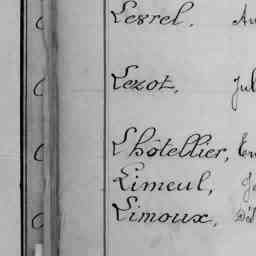 Lesrel.
Lezot, Jul
Lhôtellier,
Limeul,
Limoux,